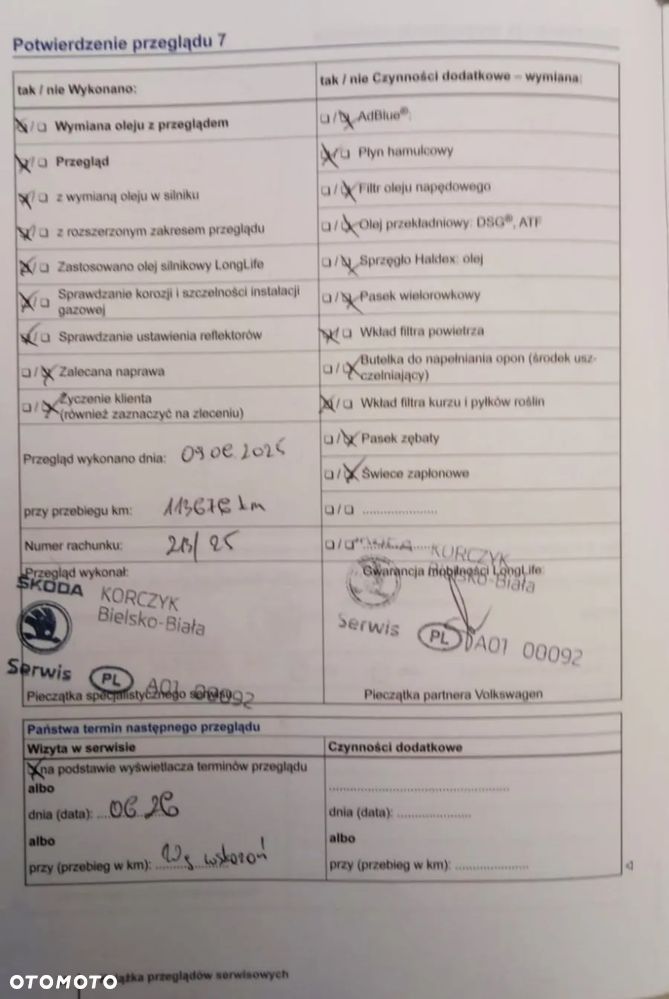 Potwierdzenie przeglądu 7
tak / nie Wykonano:
☒/☐ Wymiana oleju z przeglądem
☒/☐ Przegląd
☒/☐ z wymianą oleju w silniku
☒/☐ z rozszerzonym zakresem przeglądu
☒/☐ Zastosowano olej silnikowy LongLife
☒/☐ Sprawdzanie korozji i szczelności instalacji
gazowej
☒/☐ Sprawdzanie ustawienia reflektorów
☐/☒ Zalecana naprawa
☐/☒ Życzenie klienta
(również zaznaczyć na zleceniu)
Przegląd wykonano dnia: 09 06 2025
przy przebiegu km: 113678 km
Numer rachunku: 213/25
Przegląd wykonał:
ŠKODA KORCZYK
Bielsko-Biała
Serwis PL A01 00092
Pieczątka specjalistycznego serwisu
tak / nie Czynności dodatkowe – wymiana:
☐/☒ AdBlue®:
☒/☐ Płyn hamulcowy
☐/☒ Filtr oleju napędowego
☐/☒ Olej przekładniowy: DSG®, ATF
☐/☒ Sprzęgło Haldex: olej
☐/☒ Pasek wielorowkowy
☒/☐ Wkład filtra powietrza
☐/☒ Butelka do napełniania opon (środek usz-
czelniający)
☒/☐ Wkład filtra kurzu i pyłków roślin
☐/☒ Pasek zębaty
☐/☒ Świece zapłonowe
☐/☐ .....................
☐/☐ .....................
KORCZYK
Gwarancja mobilności LongLife:
Bielsko-Biała
Serwis PL A01 00092
Pieczątka partnera Volkswagen
Państwa termin następnego przeglądu
Wizyta w serwisie
☒ na podstawie wyświetlacza terminów przeglądu
albo
dnia (data): 06 26
albo
przy (przebieg w km): Wg wskazań
Czynności dodatkowe
..................................................
dnia (data): ....................
albo
przy (przebieg w km): ....................
OTOMOTO
książka przeglądów serwisowych